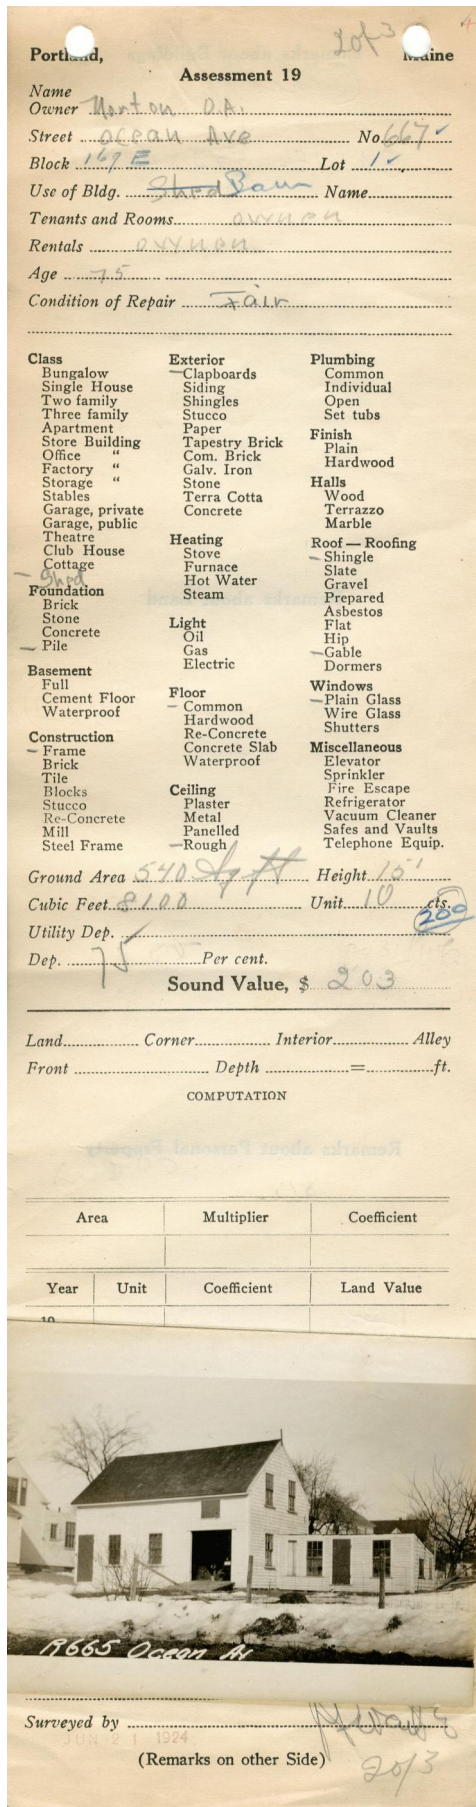 2 of 3
4
Portland, Maine
Assessment 19
Name
Owner Norton O.A.
Street Ocean Ave No. 667
Block 167 E Lot 1
Use of Bldg. Shed Barn Name
Tenants and Rooms owner
Rentals owner
Age 75
Condition of Repair Fair
Class
Bungalow
Single House
Two family
Three family
Apartment
Store Building
Office "
Factory "
Storage "
Stables
Garage, private
Garage, public
Theatre
Club House
Cottage
Shed
Foundation
Brick
Stone
Concrete
Pile
Basement
Full
Cement Floor
Waterproof
Construction
Frame
Brick
Tile
Blocks
Stucco
Re-Concrete
Mill
Steel Frame
Exterior
Clapboards
Siding
Shingles
Stucco
Paper
Tapestry Brick
Com. Brick
Galv. Iron
Stone
Terra Cotta
Concrete
Heating
Stove
Furnace
Hot Water
Steam
Light
Oil
Gas
Electric
Floor
Common
Hardwood
Re-Concrete
Concrete Slab
Waterproof
Ceiling
Plaster
Metal
Panelled
Rough
Plumbing
Common
Individual
Open
Set tubs
Finish
Plain
Hardwood
Halls
Wood
Terrazzo
Marble
Roof — Roofing
Shingle
Slate
Gravel
Prepared
Asbestos
Flat
Hip
Gable
Dormers
Windows
Plain Glass
Wire Glass
Shutters
Miscellaneous
Elevator
Sprinkler
Fire Escape
Refrigerator
Vacuum Cleaner
Safes and Vaults
Telephone Equip.
Ground Area 540 Sq ft Height 15'
Cubic Feet 8100 Unit 10 cts.
200
Utility Dep.
Dep. 75 Per cent.
Sound Value, $ 203
Land Corner Interior Alley
Front Depth = ft.
COMPUTATION
Area Multiplier Coefficient
Year Unit Coefficient Land Value
19
R665 Ocean Av
Surveyed by
JUN 21 1924
(Remarks on other Side)
2 of 3